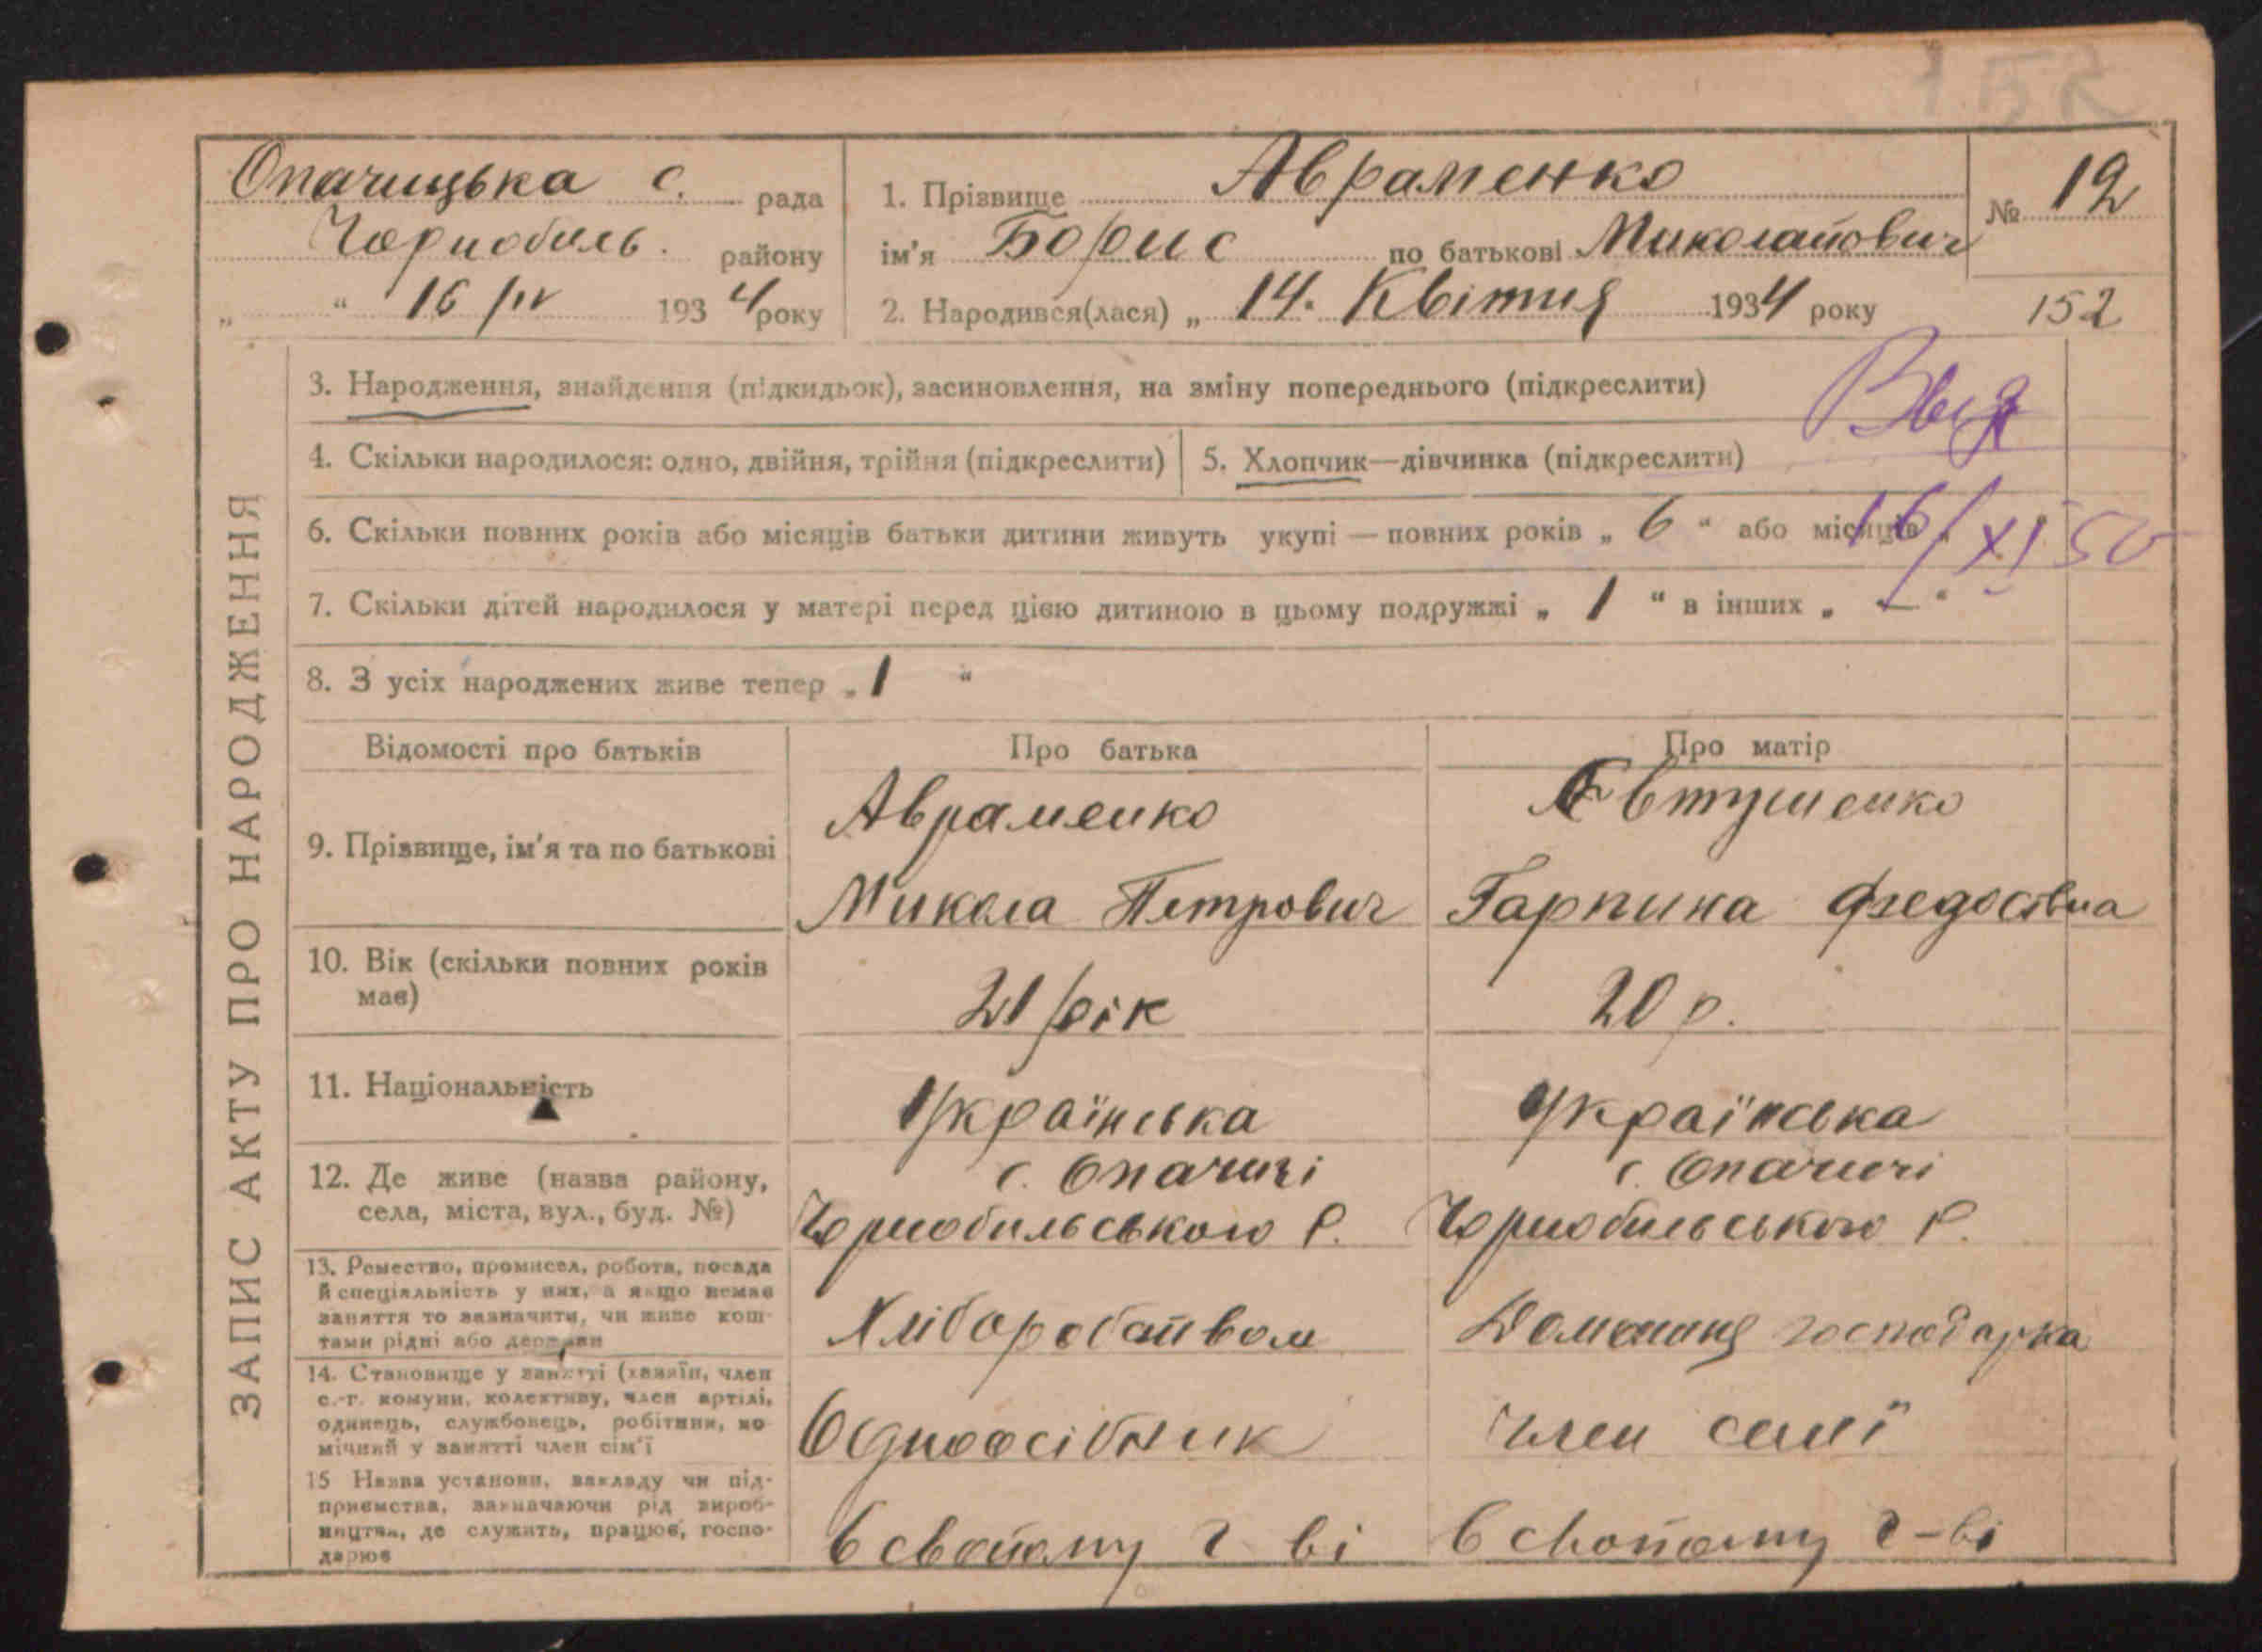 152
Опачицька с. рада
Чорнобиль. району
„ “ 16/IV 1934 року
1. Прізвище Авраменко
ім'я Борис по батькові Миколайович
2. Народився(лася) „ 14. Квітня 1934 року
№ 12
152
ЗАПИС АКТУ ПРО НАРОДЖЕННЯ
3. Народження, знайдення (підкидьок), засиновлення, на зміну попереднього (підкреслити)
4. Скільки народилося: одно, двійня, трійня (підкреслити) 5. Хлопчик—дівчинка (підкреслити)
6. Скільки повних років або місяців батьки дитини живуть укупі — повних років „ 6 “ або місяців „
16/XI 50
7. Скільки дітей народилося у матері перед цією дитиною в цьому подружжі „ 1 “ в інших „ — “
8. З усіх народжених живе тепер „ 1 “
Відомості про батьків Про батька Про матір
9. Прізвище, ім'я та по батькові
Авраменко
Микола Петрович
Євтушенко
Гарпина Федосівна
10. Вік (скільки повних років
має)
21 рік
20 р.
11. Національність
Українська
Українська
12. Де живе (назва району,
села, міста, вул., буд. №)
с. Опачичі
Чорнобильського Р.
с. Опачичі
Чорнобильського Р.
13. Ремество, промисел, робота, посада
й спеціяльність у них, а якщо немає
заняття то зазначити, чи живе кош-
тами рідні або держави
Хліборобством
Домашня господарка
14. Становище у занятті (хазяїн, член
с.-г. комуни, колективу, член артілі,
одинець, службовець, робітник, по
мічний у занятті член сім'ї
Одноосібник
Член семї
15 Назва установи, закладу чи під-
приємства, зазначаючи рід вироб-
ництва, де служить, працює, госпо-
дарює
В свойому г-ві
В свойому г-ві